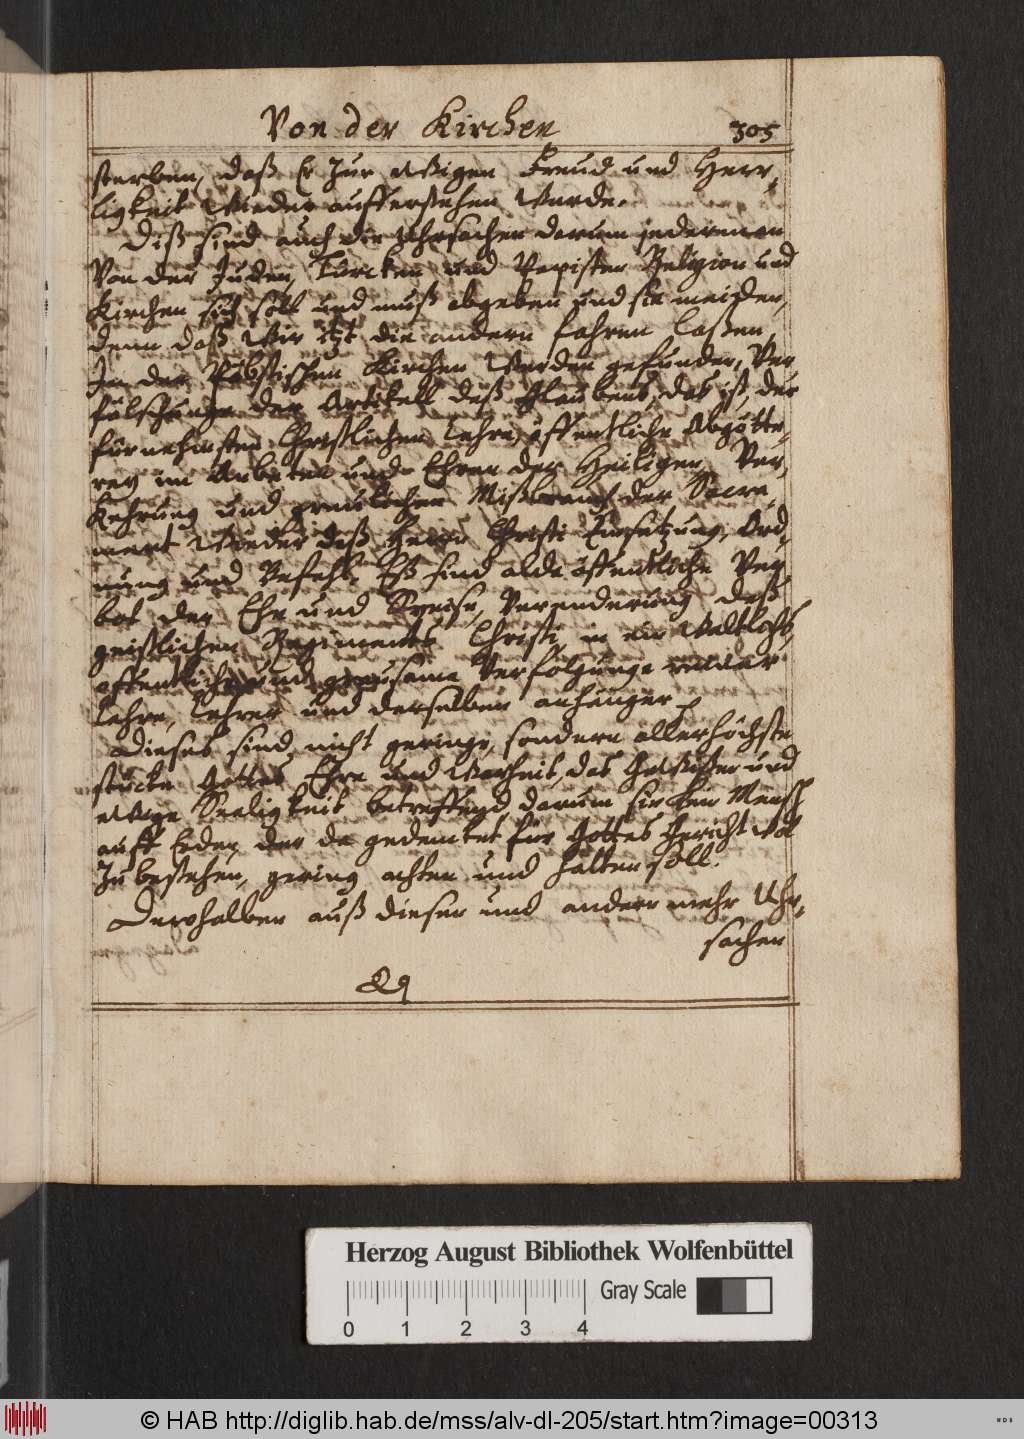 Von der Kirchen
305
sterben, daß Er Zur ewigen Freud und Herr,
ligkeit wieder aufferstehen werde.
Diß sind auch die Uhrsachen darum jederman
Von der Juden, Türcken und Papisten Religion und
Kirchen sich soll und muß abgeben und sie meiden,
denn daß wir itzt die andern fahren laßen,
In der Päbstischen Kirchen werden gefunden, Ver
fälschunge der Artikell deß Glaubens, das ist, der
fürnehmsten Christlichen Lehre, öffentliche Abgötte,
rey im Anbeten und Ehren der Heiligen, Ver,
kehrung und greulicher Mißbrauch der Sacra,
ment wieder deß Herrn Christi Einsetzung, Ord,
nung und Befehl. Eß sind alda öffentliche Ver
bot der Ehe und Speise, Veranderung deß
geistlichen Regiments Christi, in ein weltlichs,
offentliche und grausame Verfolgunge
Lehre, Lehrer und derselben anhänger
Dieses sind nicht geringe, sondern allerhöchste
stücke Gottes Ehre und Warheit, das Gewißen und
ewige Seeligkeit betreffend, darum sie kein Mensch
auff Erden, der da gedencket für Gottes Gericht wol
Zu bestehen, gering achten und halten soll.
Derohalben auß dieser und anderr mehr Uhr,
sachen
Qq
Herzog August Bibliothek Wolfenbüttel
Gray Scale
0 1 2 3 4
© HAB http://diglib.hab.de/mss/alv-dl-205/start.htm?image=00313
WDB